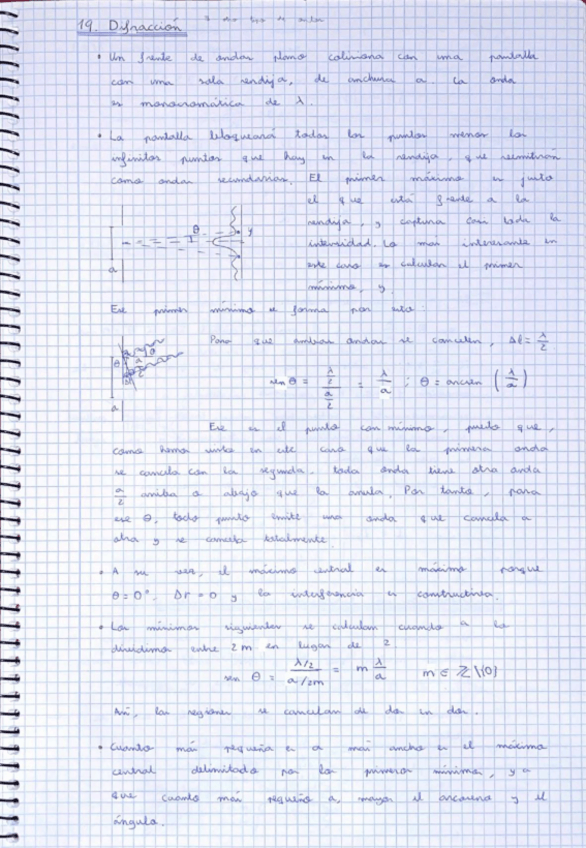 19. Difracción
• Un frente de ondas plano colisiona con una pantalla
con una sola rendija, de anchura a. La onda
es monocromática de λ.
• La pantalla bloqueará todos los puntos menos los
infinitos puntos que hay en la rendija, que
como ondas secundarias. El primer máximo es justo
el que está frente a la
rendija, y captura casi toda la
intensidad. Lo más interesante en
este caso es calcular el primer
mínimo, y.
θ
y
a
Ese primer mínimo se forma por esto
Para que ambas ondas se cancelen, Δl = λ/2
θ
a
sen θ = (λ/2)/(a/2) = λ/a ; θ = arcsen (λ/a)
Ese es el punto con mínimo, puesto que,
como hemos visto en este caso que la primera onda
se cancela con la segunda, toda onda tiene otra onda
a/2 arriba o abajo que la anula. Por tanto, para
ese θ, todo punto emite una onda que cancela a
otra y se cancela totalmente.
• A su vez, el máximo central es máximo porque
θ = 0°, Δr = 0 y la interferencia es constructiva.
• Los mínimos siguientes se calculan cuando a la
dividimos entre 2m en lugar de 2
sen θ = (λ/2)/(a/2m) = m λ/a m ∈ ℤ\{0}
Así, las regiones se cancelan de dos en dos.
• Cuanto más pequeña es a más ancho es el máximo
central delimitado por los primeros mínimos, ya
que cuanto más pequeño a, mayor el arcoseno y el
ángulo.